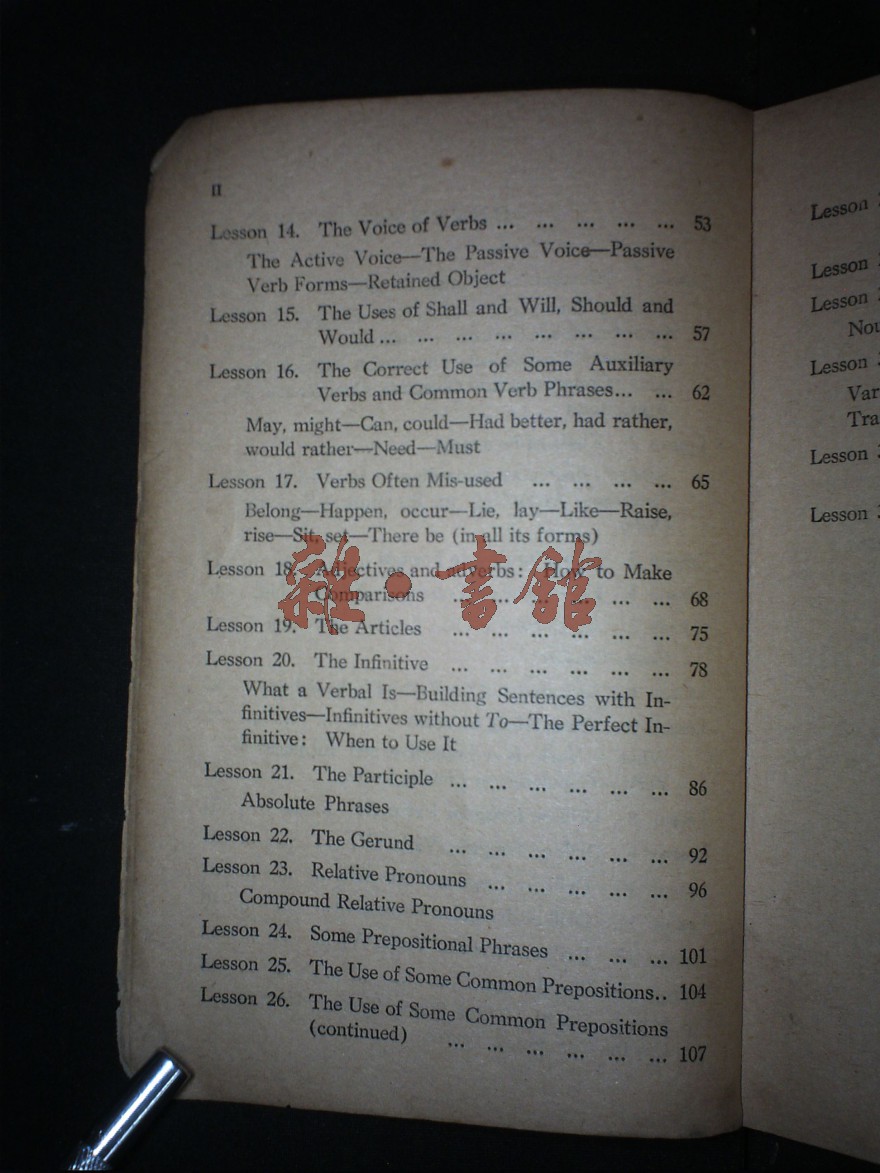 II
Lesson 14. The Voice of Verbs ... ... ... ... ... 53
The Active Voice—The Passive Voice—Passive
Verb Forms—Retained Object
Lesson 15. The Uses of Shall and Will, Should and
Would ... ... ... ... ... ... ... ... 57
Lesson 16. The Correct Use of Some Auxiliary
Verbs and Common Verb Phrases... ... 62
May, might—Can, could—Had better, had rather,
would rather—Need—Must
Lesson 17. Verbs Often Mis-used ... ... ... ... 65
Belong—Happen, occur—Lie, lay—Like—Raise,
rise—Sit, set—There be (in all its forms)
Lesson 18. Adjectives and adverbs: How to Make
Comparisons ... ... ... ... ... ... 68
Lesson 19. The Articles ... ... ... ... ... ... 75
Lesson 20. The Infinitive ... ... ... ... ... ... 78
What a Verbal Is—Building Sentences with In-
finitives—Infinitives without To—The Perfect In-
finitive: When to Use It
Lesson 21. The Participle ... ... ... ... ... ... 86
Absolute Phrases
Lesson 22. The Gerund ... ... ... ... ... ... 92
Lesson 23. Relative Pronouns ... ... ... ... ... 96
Compound Relative Pronouns
Lesson 24. Some Prepositional Phrases ... ... ... 101
Lesson 25. The Use of Some Common Prepositions.. 104
Lesson 26. The Use of Some Common Prepositions
(continued) ... ... ... ... ... ... 107
雜·書館
Lesson
Lesson
Lesson
Lesson
Lesson
Lesson